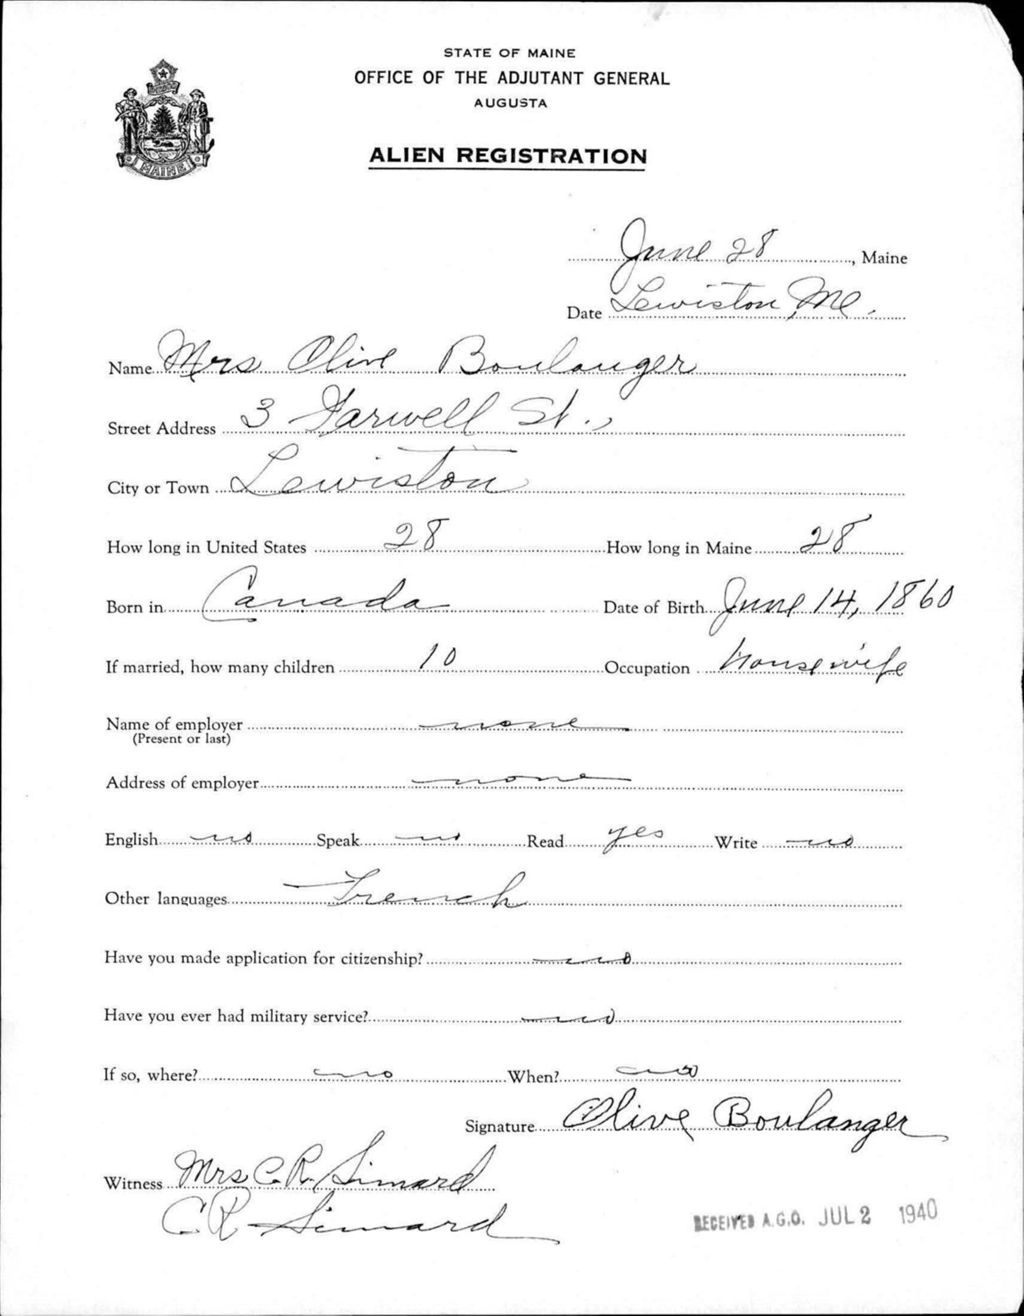 STATE OF MAINE
OFFICE OF THE ADJUTANT GENERAL
AUGUSTA
ALIEN REGISTRATION
MAINE
June 28, Maine
Date Lewiston, Me.
Name Mrs Olive Boulanger
Street Address 3 Farwell St.,
City or Town Lewiston
How long in United States 28 How long in Maine 28
Born in Canada Date of Birth June 14, 1860
If married, how many children 10 Occupation Housewife
Name of employer none
(Present or last)
Address of employer none
English no Speak no Read yes Write no
Other languages French
Have you made application for citizenship? no
Have you ever had military service? no
If so, where? no When? no
Signature Olive Boulanger
Witness Mrs C. R. Simard
C R Simard
RECEIVED A.G.O. JUL 2 1940